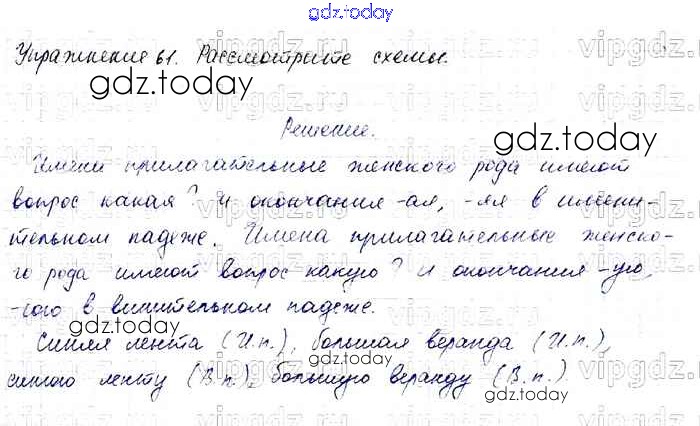 gdz.today
Упражнение 61. Рассмотрите схемы.
gdz.today
Решение.
gdz.today
Имена прилагательные женского рода имеют
вопрос какая? и окончания -ая, -яя в имени-
gdz.today
тельном падеже. Имена прилагательные женско-
го рода имеют вопрос какую? и окончания -ую,
-юю в винительном падеже.
gdz.today
Синяя лента (И.п.), большая веранда (И.п.),
gdz.today
синюю ленту (В.п.), большую веранду (В.п.).